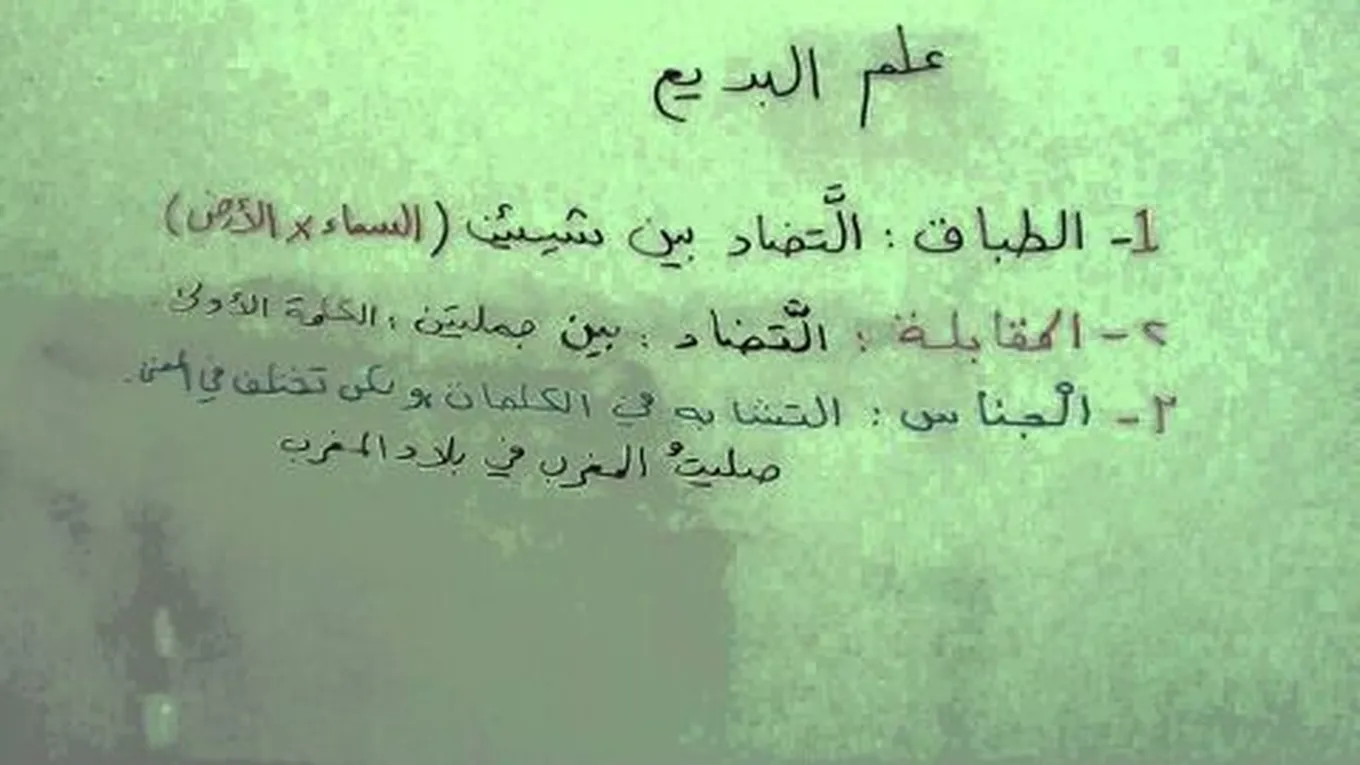 علم البديع
1- الطباق : التَّضاد بين شيئين (السماء x الأرض)
٢- المقابلة : التَّضاد : بين جملتين : الكلمة الأولى
٣- الْجناس : التشابه في الكلمات ولكن تختلف في المعنى.
صليتُ المغرب في بلاد المغرب